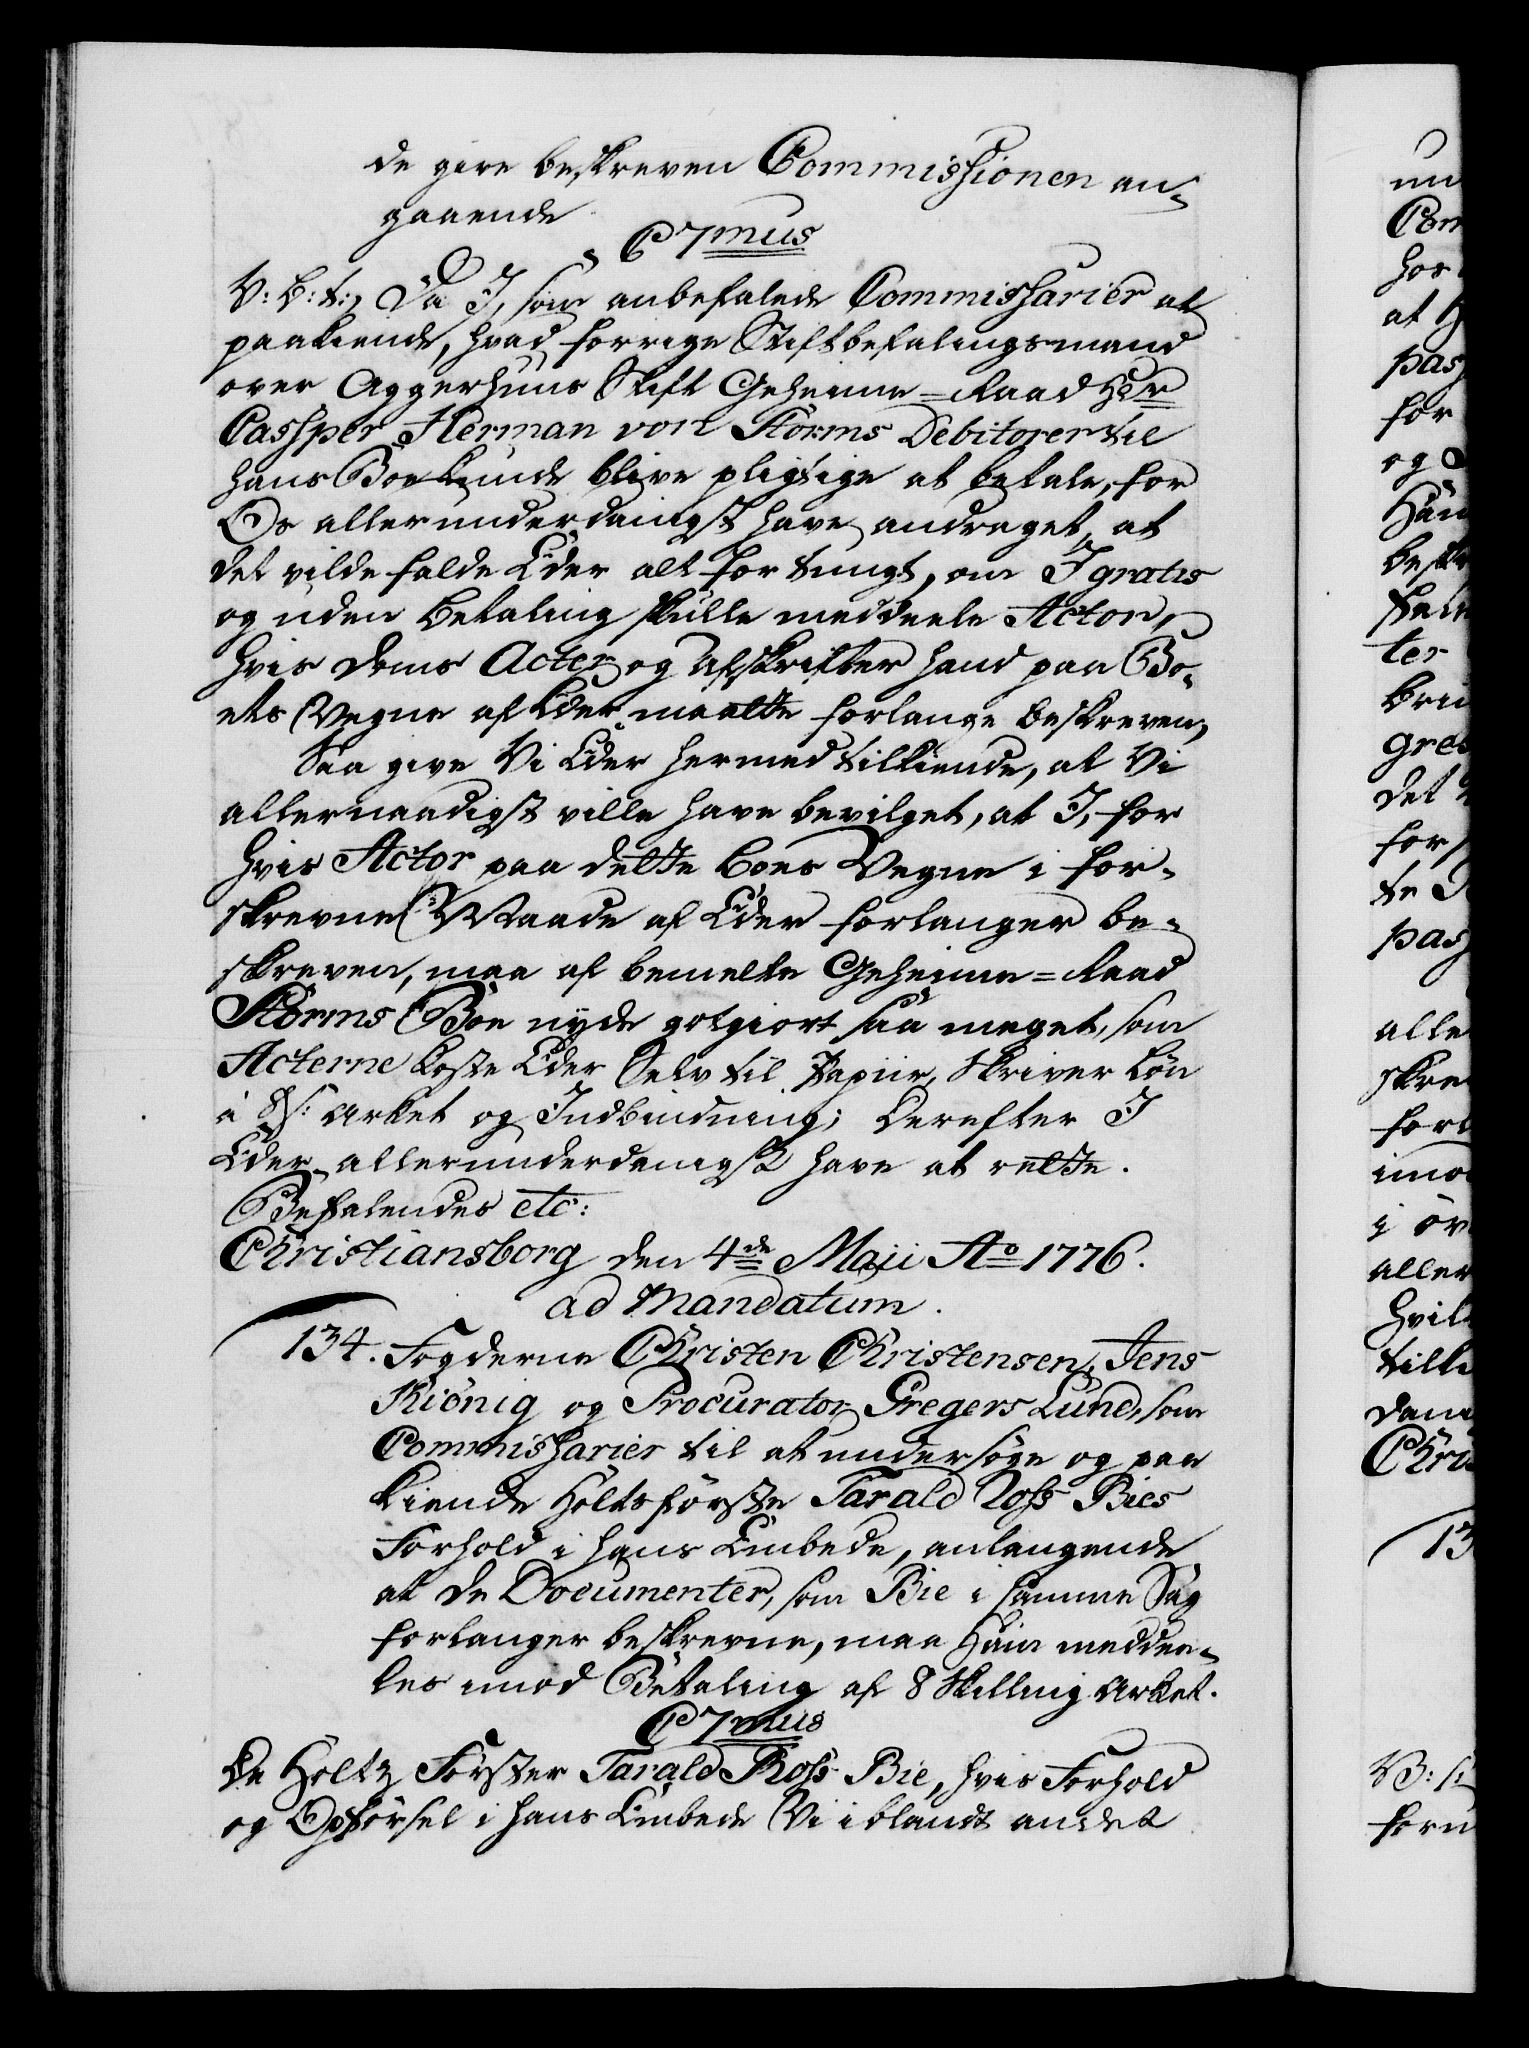 de give beskreven Commissionen an-
gaaende
C7mus
V: B: t:, Da I, som anbefalede Commissarier at
paakiende, hvad forrige Stiftbefalingsmand
over Aggerhuus Stift Geheime=Raad Hr
Cassper Herman von Störms Debitorer til
hans Boe kunde blive pligtige at betale, for
Os allerunderdanigst have andraget, at
det vilde falde Eder alt for tungt, om I gratis
og uden Betaling skulle meddeele Actor,
hvis Doms Acter og Afskrifter hand paa Bo-
ets Vegne af Eder maatte forlange beskreven,
Saa give Vi Eder hermed tilkiende, at Vi
allernaadigst ville have bevilget, at I, for
hvis Actor paa dette Boes Vegne i for-
skrevne Maade af Eder forlanger be-
skreven, maa af bemelte Geheime=Raad
Störms Boe nyde gotgiort saa meget, som
Acterne koste Eder Selv til Papiir, Skriver Løn
á 8 s: Arket og Indbindning; Derefter I
Eder allerunderdanigst have at rette.
Befalendes etc:
Christiansborg den 4de Maji Ao 1776.
ad Mandatum.
134. Fogderne Christen Christensen, Jens
Kiönig og Procurator Gregers Lund, som
Commissarier til at undersöge og paa
kiende Holtsförster Tarald Ross Bies
Forhold i hans Embede, anlangende
at de Documenter, som Bie i samme Sag
forlanger beskrevne, maa Ham meddee-
les imod Betaling af 8 Skilling Arket.
C7mus
De Holtz Förster Tarald Ross Bie, hvis Forhold
og Opförsel i hans Embede Vi iblandt andet